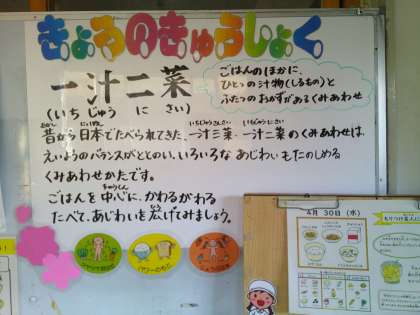 きょうのきゅうしょく
一汁二菜
(いち じゅう に さい)
ごはんのほかに、
ひとつの汁物(しるもの)と
ふたつのおかずがあるくみあわせ
昔から日本でたべられてきた、一汁三菜・一汁二菜のくみあわせは、
えいようのバランスがととのい、いろいろなあじわいもたのしめる
くみあわせかたです。
ごはんを中心に、かわるがわる
たべて、あじわいを広げてみましょう。
4月30日(水)